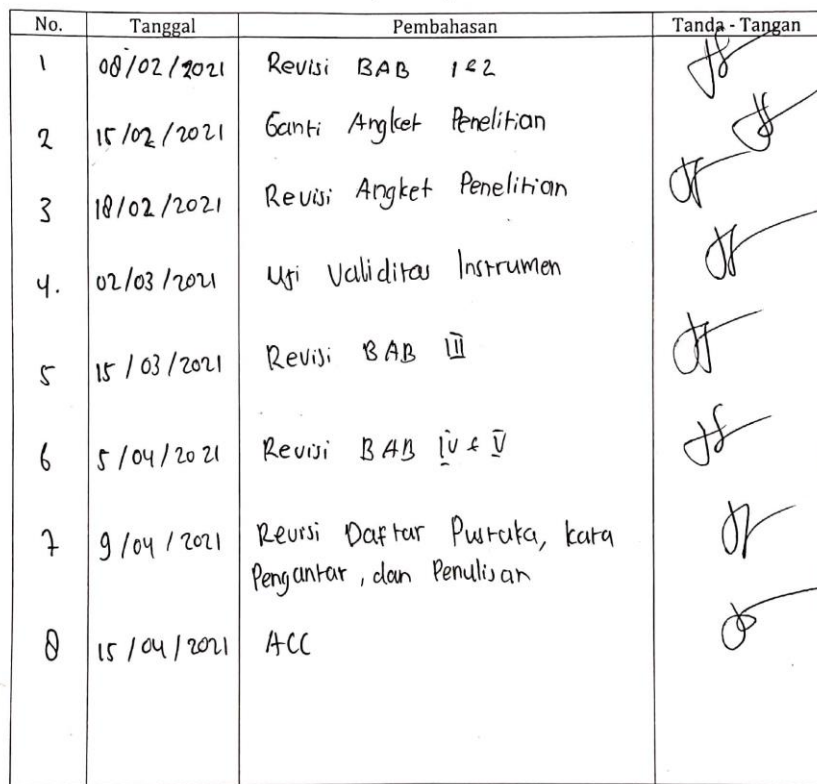 No. Tanggal Pembahasan Tanda - Tangan
1 08/02/2021 Revisi BAB 1 & 2
2 15/02/2021 Ganti Angket Penelitian
3 18/02/2021 Revisi Angket Penelitian
4. 02/03/2021 Uji Validitas Instrumen
5 15/03/2021 Revisi BAB III
6 5/04/2021 Revisi BAB IV & V
7 9/04/2021 Revisi Daftar Pustaka, kata
Pengantar, dan Penulisan
8 15/04/2021 ACC